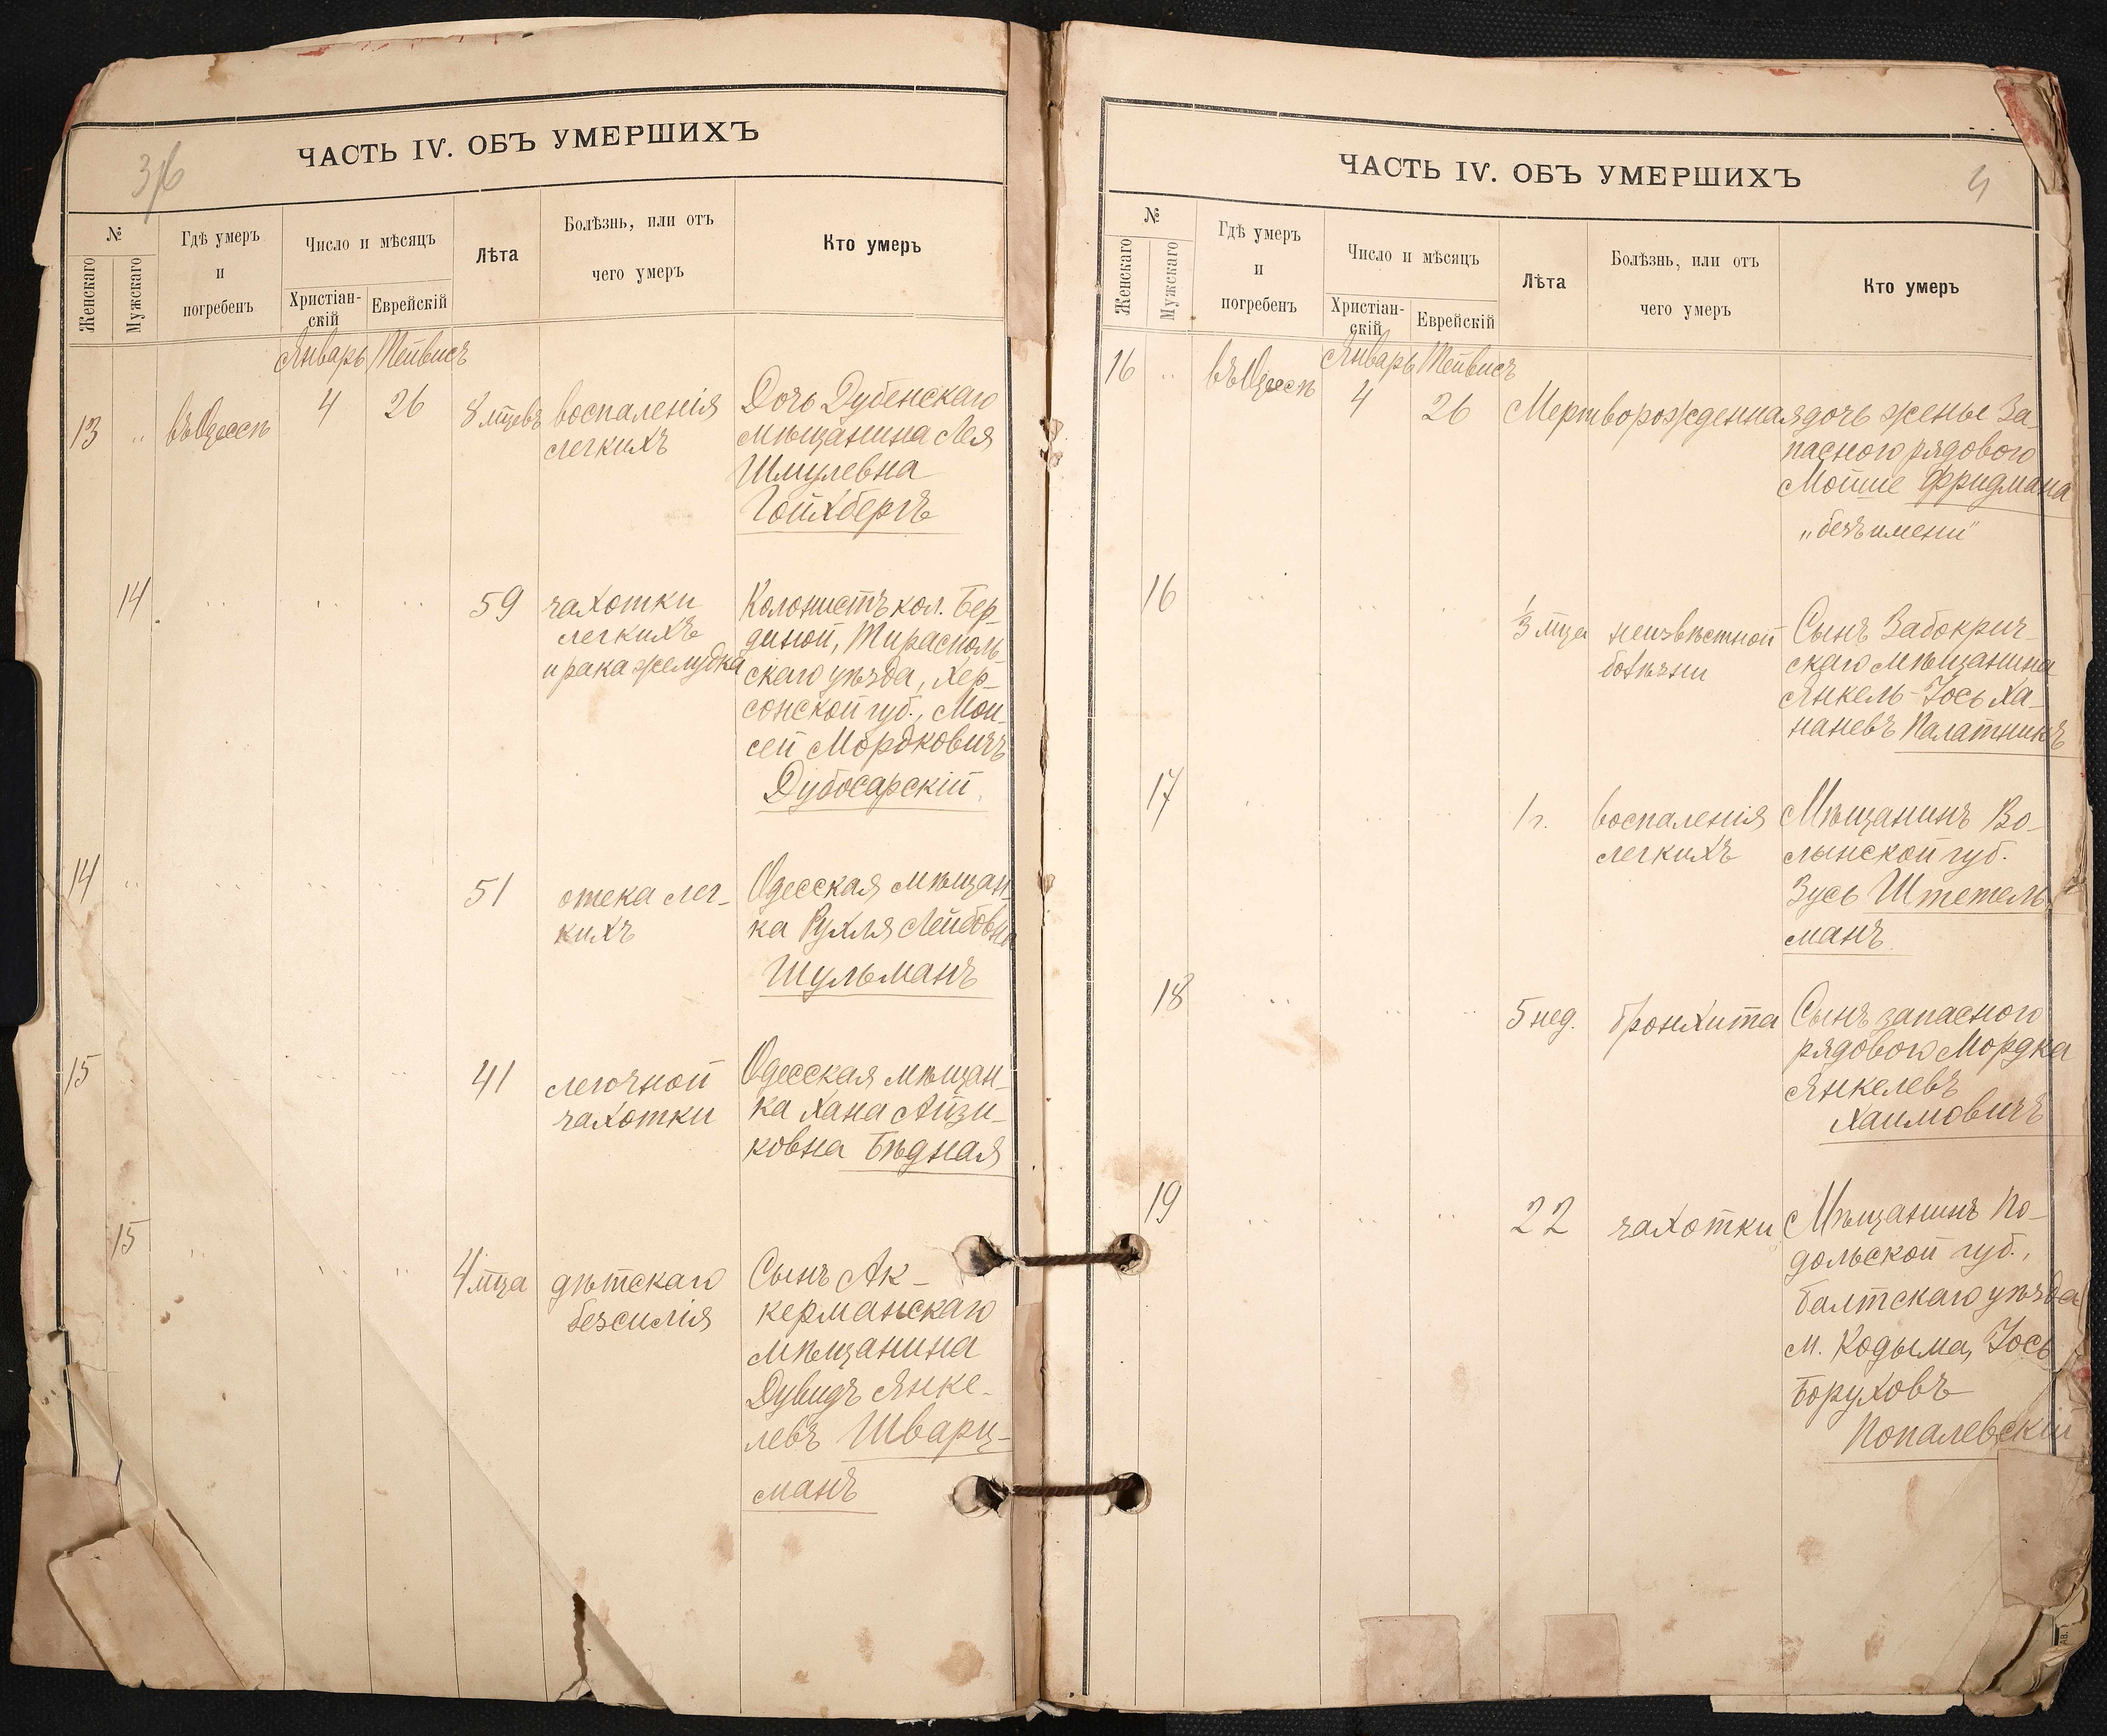 ЧАСТЬ IV. ОБЪ УМЕРШИХЪ
№
Женскаго
Мужскаго
Гдѣ умеръ
и
погребенъ
Число и мѣсяцъ
Христіан-
скій
Еврейскій
Лѣта
Болѣзнь, или отъ
чего умеръ
Кто умеръ
Январь Тейвисъ
13 " въ Одессѣ 4 26 8 мцевъ воспаленія
легкихъ
Дочь Дубенскаго
мѣщанина Лея
Шмулевна
Гойхбергъ
14 59 чахотки
легкихъ
и рака желудка
Колонистъ кол. Бер-
диной, Тирасполь-
скаго уѣзда, Хер-
сонской губ., Мои-
сей Мордковичъ
Дубосарскій
14 51 отека лег-
кихъ
Одесская мѣщан-
ка Рухля Лейбовна
Шульманъ
15 41 легочной
чахотки
Одесская мѣщан-
ка Хана Айзи-
ковна Бѣдная
15 4 мца дѣтскаго
безсилія
Сынъ Ак-
керманскаго
мѣщанина
Дувидъ Янке-
левъ Шварц-
манъ
ЧАСТЬ IV. ОБЪ УМЕРШИХЪ
4
№
Женскаго
Мужскаго
Гдѣ умеръ
и
погребенъ
Число и мѣсяцъ
Христіан-
скій
Еврейскій
Лѣта
Болѣзнь, или отъ
чего умеръ
Кто умеръ
Январь Тейвисъ
16 " въ Одессѣ 4 26 Мертворожденная дочь жены за-
паснаго рядового
Мойше Фридмана
„безъ имени"
16 1/3 мца неизвѣстной
болѣзни
Сынъ Забокрич-
скаго мѣщанина
Янкель-Іось Ха-
наневъ Палатникъ
17 1 г. воспаленія
легкихъ
Мѣщанинъ Во-
лынской губ.
Зусь Штетель-
манъ
18 5 нед. бронхита
Сынъ запасного
рядового Мордка
Янкелевъ
Хаимовичъ
19 22 чахотки
Мѣщанинъ По-
дольской губ.,
балтскаго уѣзда
м. Кодыма, Іось
Боруховъ
Попалевскій